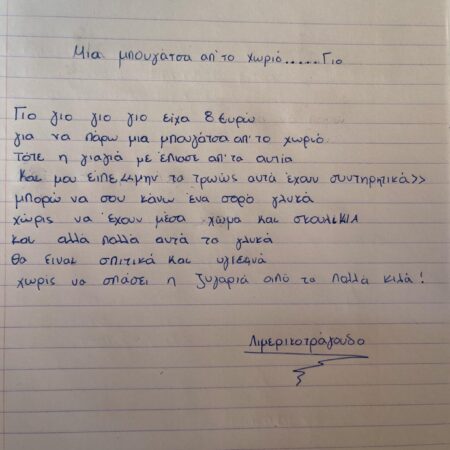 Μια μπουγάτσα απ' το χωριό......Γιο
Γιο γιο γιο γιο είχα 8 Ευρώ
για να πάρω μια μπουγάτσα απ' το χωριό
Τότε η γιαγιά με έπιασε απ' τα αυτιά
Και μου είπε <<μην τα τρώως αυτά έχουν συντηρητικά>>
μπορώ να σου κάνω ένα σορό γλυκά
χωρίς να έχουν μέσα χώμα και σκουλίκΙΑ
και αλλά πολλά αυτά τα γλυκά
θα είναι σπιτικά και υγιεινά
χωρίς να σπάσει η ζυγαριά από τα πολλά κιλά!
Λιμερικοτράγουδο